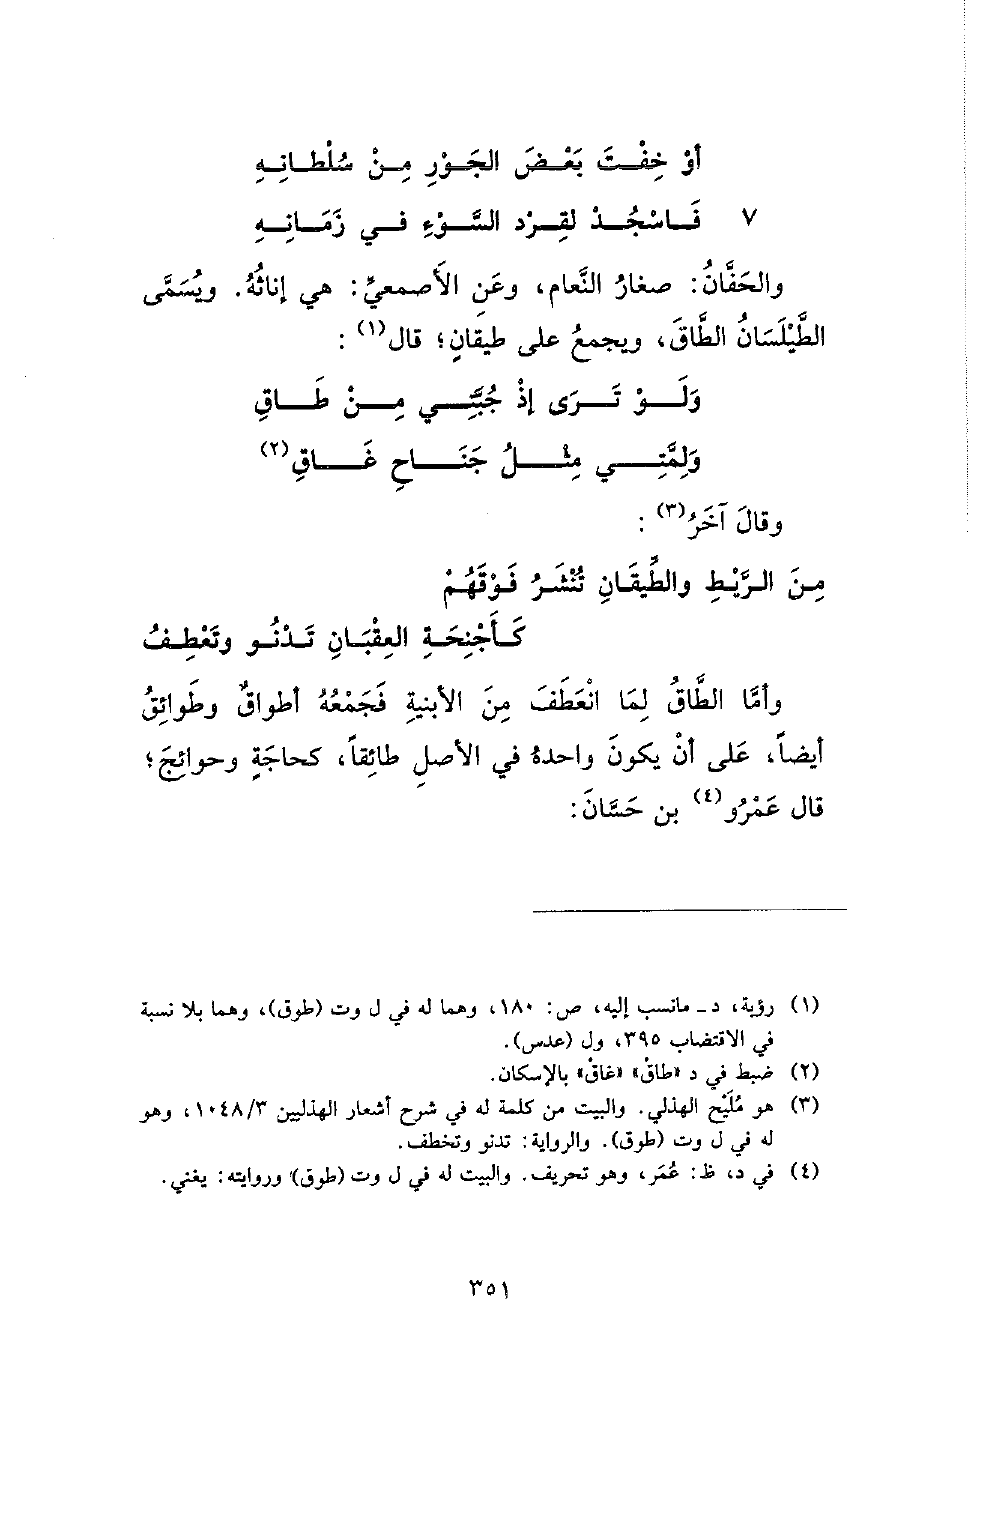 أوْ خِفْتَ بَعْضَ الجَوْرِ مِنْ سُلْطانِهِ
٧ فَاسْجُدْ لقِرْد السَّوْءِ في زَمَانِهِ
والحَفَّانُ: صغارُ النَّعام، وعَنِ الأَصمعيِّ: هي إناثُهُ. ويُسَمَّى
الطَّيْلَسَانُ الطَّاقَ، ويجمعُ على طيقانٍ؛ قال(١) :
وَلَوْ تَرَى إذْ جُبَّتِي مِنْ طَاقِ
وَلِمَّتِي مِثْلُ جَنَاحِ غَاقِ(٢)
وقالَ آخَرُ(٣) :
مِنَ الرَّيْطِ والطِّيقَانِ تُنْشَرُ فَوْقَهُمْ
كَأَجْنِحَةِ العِقْبَانِ تَدْنُو وتَعْطِفُ
وأمَّا الطَّاقُ لِمَا انْعَطَفَ مِنَ الأبنيةِ فَجَمْعُهُ أطواقٌ وطَوائِقُ
أيضاً، عَلى أنْ يكونَ واحدهُ في الأصلِ طائِقاً، كحاجَةٍ وحوائِجَ؛
قال عَمْرُو(٤) بن حَسَّانَ:
(١) رؤبة، د ـ مانسب إليه، ص: ١٨٠، وهما له في ل وت (طوق)، وهما بلا نسبة
في الاقتضاب ٣٩٥، ول (عدس).
(٢) ضبط في د «طاقْ» «غاقْ» بالإسكان.
(٣) هو مُلَيْح الهذلي. والبيت من كلمة له في شرح أشعار الهذليين ١٠٤٨/٣، وهو
له في ل وت (طوق). والرواية: تدنو وتخطف.
(٤) في د، ظ: عُمَر، وهو تحريف. والبيت له في ل وت (طوق) وروايته: يغني.
٣٥١